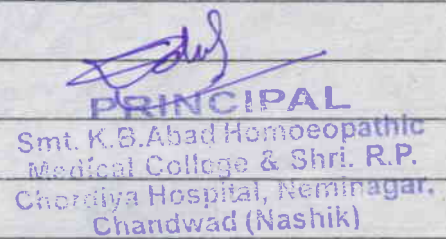 PRINCIPAL
Smt. K.B.Abad Homoeopathic
Medical College & Shri. R.P.
Chordiya Hospital, Neminagar.
Chandwad (Nashik)